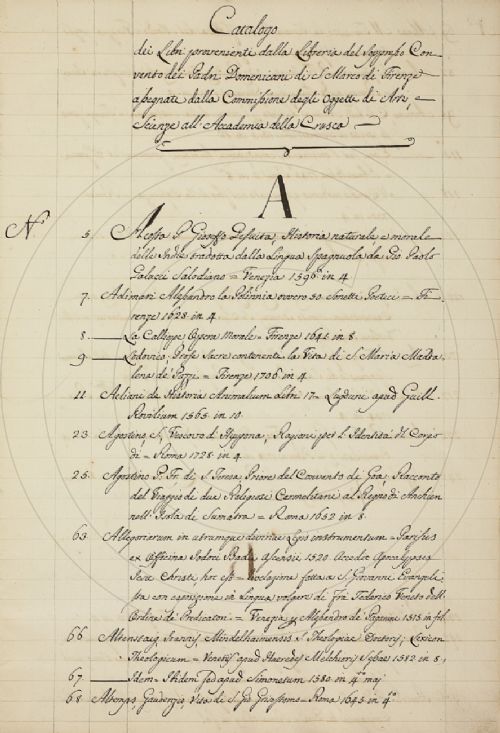 Catalogo
dei Libri provenienti dalla Libreria del Soppresso Con-
vento dei Padri Domenicani di S. Marco di Firenze
assegnati dalla Commissione degli Oggetti di Arti, e
Scienze all' Accademia della Crusca
A
N.
5. Acosta P. Gioseffo Gesuita, Historia naturale, e morale
delle Indie tradotta dalla Lingua Spagnuola da Gio Paolo
Galucci Salodiano = Venezia 1596 in 4
7. Adimari Alessandro la Polinnia ovvero 50 Sonetti = Fi-
renze 1628 in 4
8. La Calliope Opera Morale = Firenze 1641 in 8
9 Lodovico, Sacre contenente la Vita di S. Maria Madda-
lena de' Pazzi = Firenze 1706 in 4
11 Aeliani de Historia Animalium Libri 17 = Lugduni apud Guill.
Rovilium 1565 in
23 Agostino S. Vescovo d' Ippona,
= Roma 1728 in 4
25. Agostino P. Fr. di S. Teresa Priore del Convento di Goa, Racconto
del Viaggio de due Religiosi Carmelitani al Regno di Anchien
nell' Isola di Sumatra = Roma 1652 in 8
65 Allegoriarum in utrumque divinae Legis instrumentum = Parisiis
ex Officina Jodoci Badii Ascensii 1520 Accedet Apocalypsis
Jesu Christi hoc est = fatta a S. Giovanni Evangeli-
sta con esposizione in Lingua volgare de frà Federico Veneto dell'
Ordine de' Predicatori = Venezia Alessandro de Paganini 1515 in fol.
66 Altenstaig Joannis, Mindelhaimensis S. Theologiae Doctoris; Lexicon
Theologicum = Venetiis apud Haeredes Melchioris Sessae 1582 in 8,
67 Idem = Ibidem apud Simonetum 1580 in 4º maj
68 Altemps, Gaudenzio, Vita di S. Gio = Roma 1645 in 4º